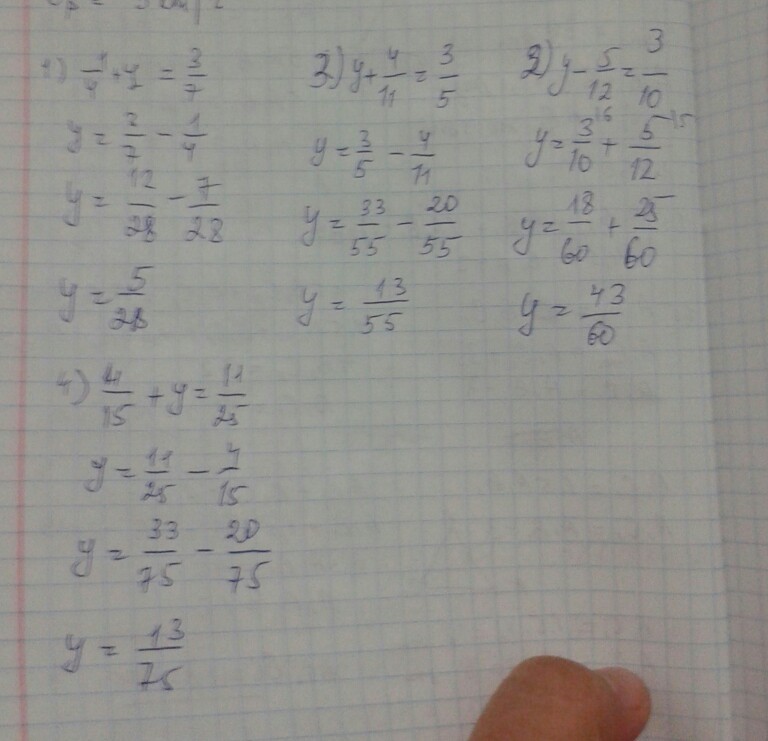 1) 1/4 + y = 3/7
y = 3/7 - 1/4
y = 12/28 - 7/28
y = 5/28
3) y + 4/11 = 3/5
y = 3/5 - 4/11
y = 33/55 - 20/55
y = 13/55
2) y - 5/12 = 3/10
y = 3/10 + 5/12
y = 18/60 + 25/60
y = 43/60
4) 4/15 + y = 11/25
y = 11/25 - 4/15
y = 33/75 - 20/75
y = 13/75